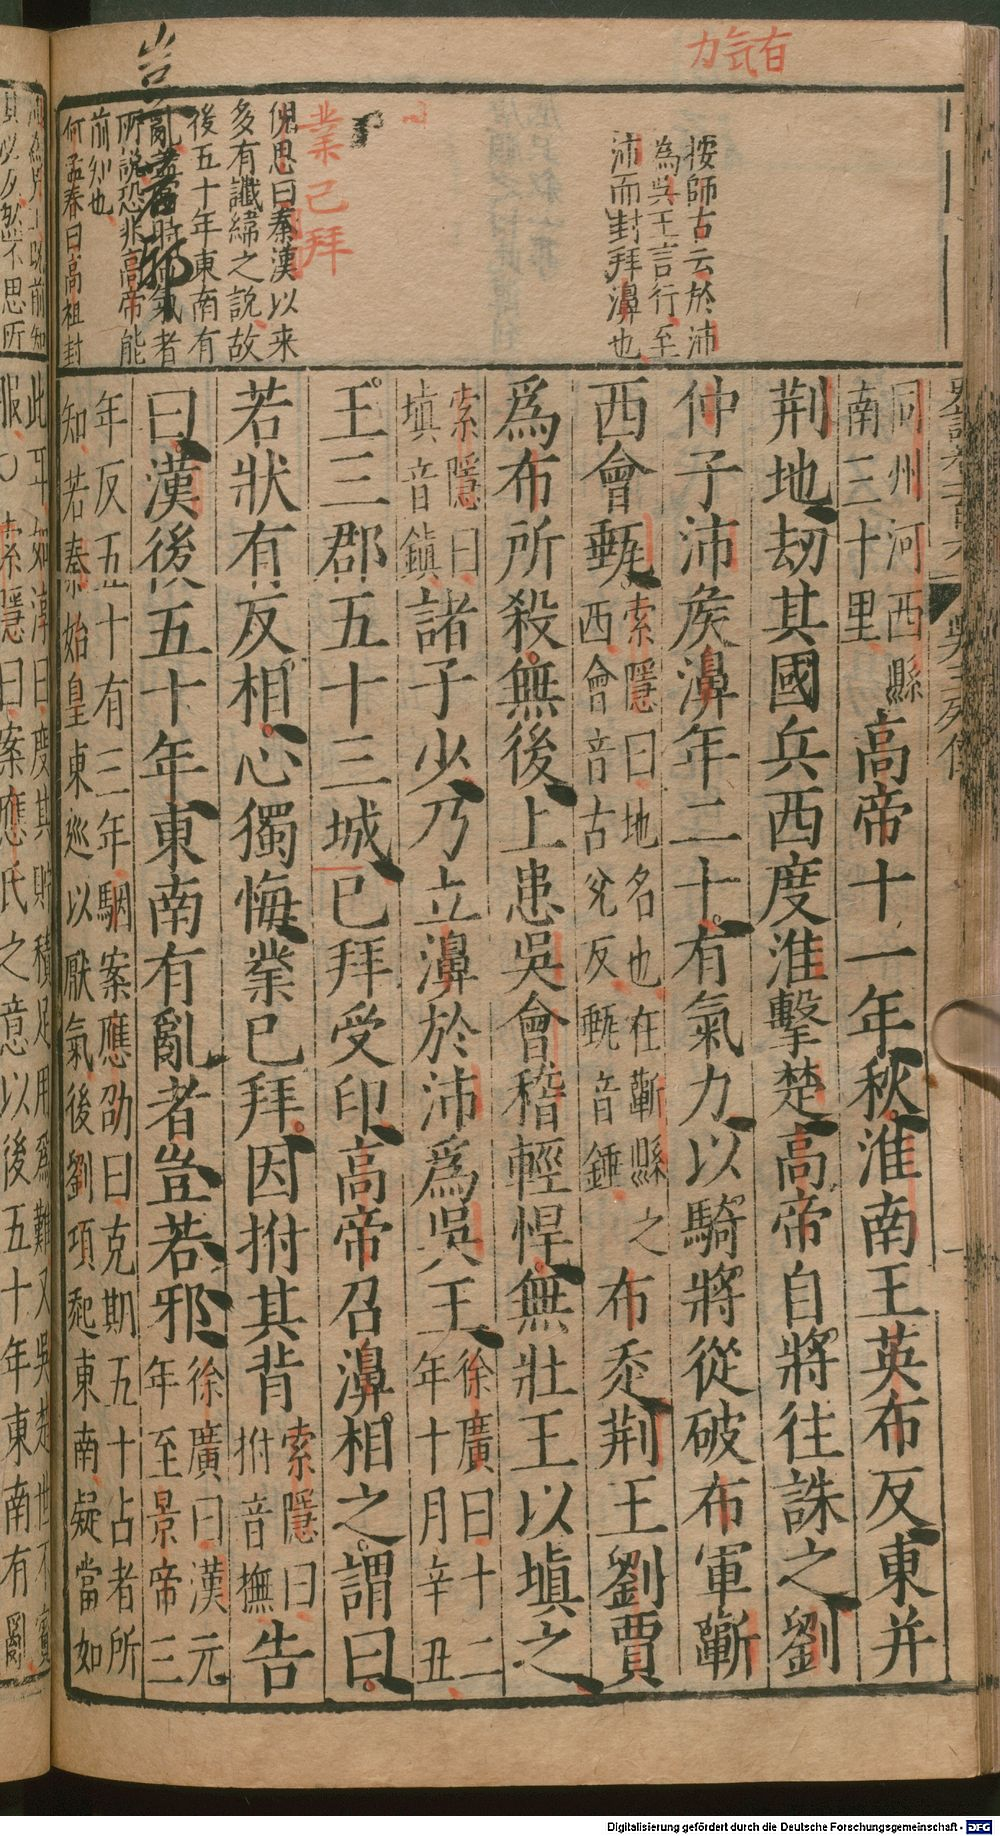 有氣力
按師古云於沛
為吳王言行至
沛而封拜濞也
業已拜
倪思曰秦漢以来
多有讖緯之說故
後五十年東南有
亂蓋時氣者
所說恐非高帝能
前知也
何孟春曰高祖封
豈
若邪
同州河西縣
南三十里
高帝十一年秋淮南王英布反東并
荆地劫其國兵西度淮擊楚高帝自將往誅之劉
仲子沛矦濞年二十有氣力以騎將從破布軍蘄
西會甀
索隱曰地名也在蘄縣之
西會音古兊反甀音錘
布走荆王劉賈
爲布所殺無後上患吳會稽輕悍無壯王以塡之
索隱曰
塡音鎮
諸子少乃立濞於沛爲吳王
徐廣曰十二
年十月辛丑
王三郡五十三城已拜受印高帝召濞相之謂曰
若狀有反相心獨悔業已拜因拊其背
索隱曰
拊音撫
告
曰漢後五十年東南有亂者豈若邪
徐廣曰漢元
年至景帝三
年反五十有三年駰案應劭曰克期五十占者所
知若秦始皇東巡以厭氣後劉項起東南疑當如
此耳如淳曰度其貯積足用爲難又吳楚世不賓
服○索隱曰案應氏之意以後五十年東南有亂
Digitalisierung gefördert durch die Deutsche Forschungsgemeinschaft - DFG